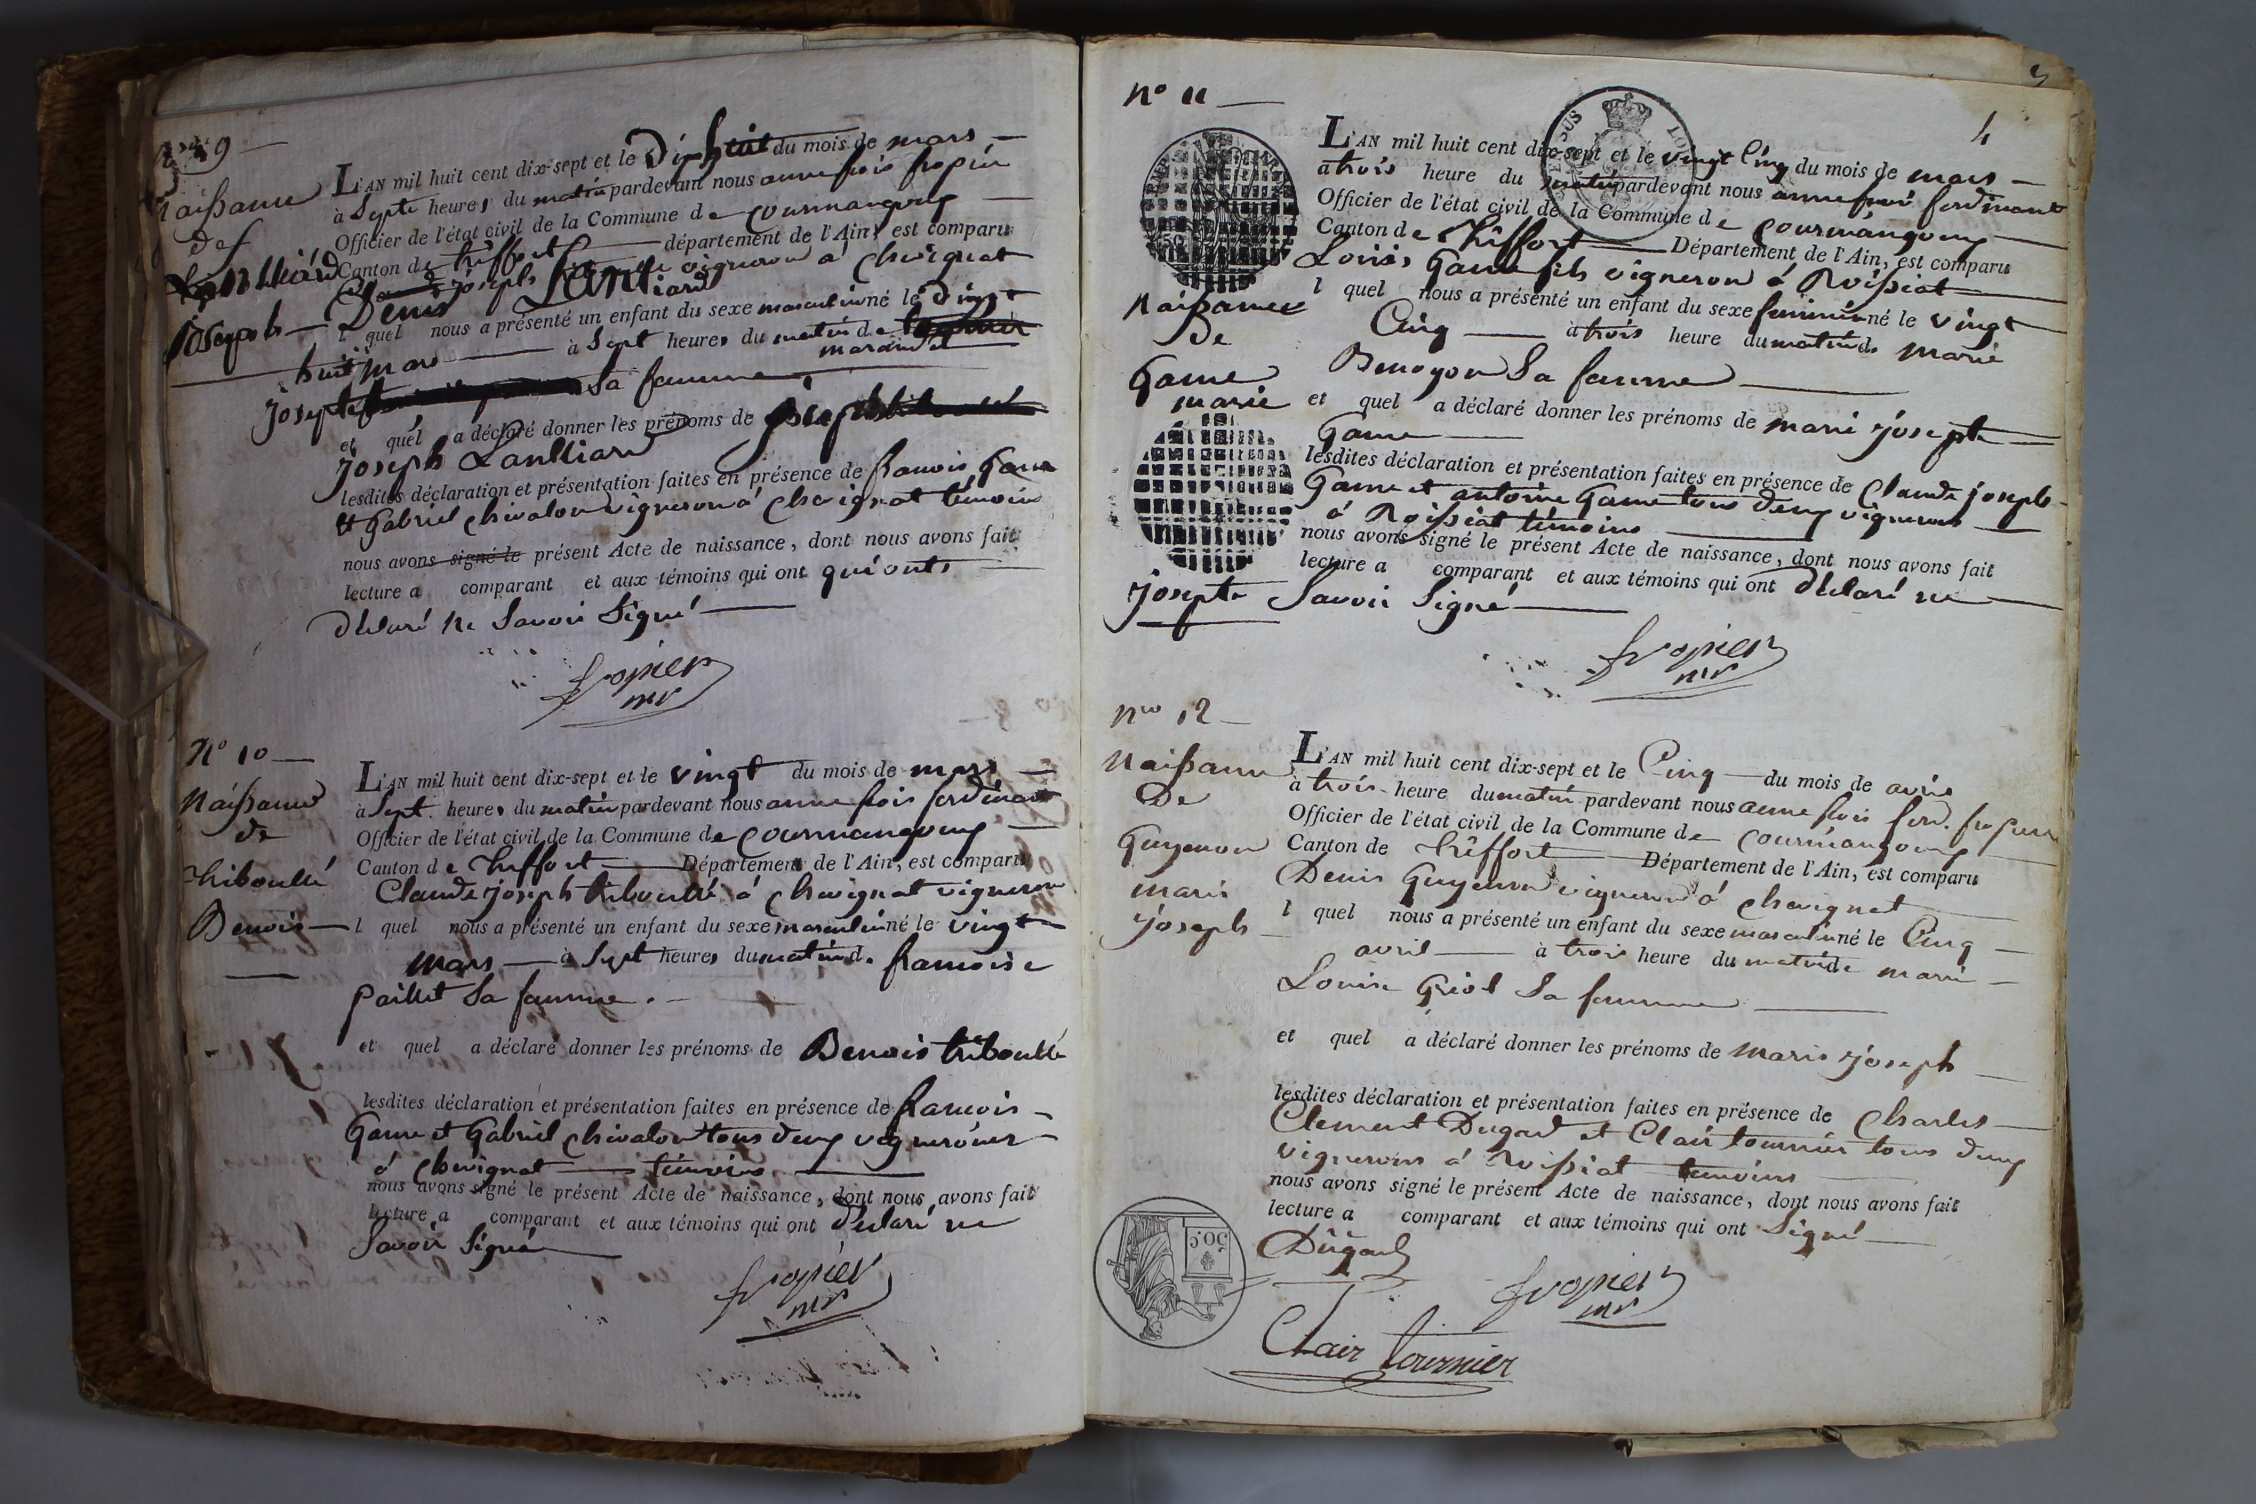 9
L'AN mil huit cent dix-sept et le Dixhuit du mois de mars
à Septe heures du matin pardevant nous anne fois fropier
Naissance
Officier de l'état civil de la Commune de Courmangoux
de
Canton de treffort département de l'Ain, est comparu
Lantliard
Denis Lantliard vigneron á chevignat
Joseph
l quel nous a présenté un enfant du sexe masculin né le Dixzt
huit mars à Sept heures du matin de
Josepte Sa femme
et quel a déclaré donner les prénoms de Joseph
Joseph Lantliard
lesdites déclaration et présentation faites en présence de francois Game
et Gabriel chivalon vigneron á chevignat témoin
nous avons signé le présent Acte de naissance, dont nous avons fait
lecture a comparant et aux témoins qui ont qui onts
déclaré ne Savoir Signé
fropier
mr
N° 10
L'AN mil huit cent dix-sept et le vingt du mois de mars
Naissance
à Sept heures du matin pardevant nous anne fois ferdinant
de
Officier de l'état civil de la Commune de Courmangoux
Canton de treffort Département de l'Ain, est comparu
thiboullé
Claude joseph thiboullé á chevignat vigneron
Benois
l quel nous a présenté un enfant du sexe masculin né le vingt
mars à Sept heures du matin de francoise
paillet Sa femme.
et quel a déclaré donner les prénoms de Benois thiboullé
lesdites déclaration et présentation faites en présence de francois
Game et Gabriel chivalon tous deux vignerons
á chevignat témoins
nous avons signé le présent Acte de naissance, dont nous avons fait
lecture a comparant et aux témoins qui ont déclaré ne
Savoir Signé
fropier
mr
N° 11
4
L'AN mil huit cent dix-sept et le vingt Cinq du mois de mars
à trois heure du matin pardevant nous anne fois ferdinant
Officier de l'état civil de la Commune de Courmangoux
Canton de treffort Département de l'Ain, est comparu
Louis Game fils vigneron á Roissiat
Naissance
l quel nous a présenté un enfant du sexe feminin né le vingt
De
Cinq à trois heure du matin de Marie
Game
Benoyon Sa femme
marie
et quel a déclaré donner les prénoms de marie josepte
Game
lesdites déclaration et présentation faites en présence de Claude joseph
Game et antoine Game tous deux vignerons
á Roissiat témoins
nous avons signé le présent Acte de naissance, dont nous avons fait
lecture a comparant et aux témoins qui ont déclaré ne
josepte
Savoir Signé
fropier
mr
Nro 12
L'AN mil huit cent dix-sept et le Cinq du mois de avril
Naissance
à trois heure du matin pardevant nous anne fois fer. fropier
De
Officier de l'état civil de la Commune de Courmangoux
Guyenon
Canton de treffort Département de l'Ain, est comparu
Denis Guyenon vigneron á chevignat
marie
l quel nous a présenté un enfant du sexe masculin né le Cinq
joseph
avril à trois heure du matin de marie
Louise Griot Sa femme
et quel a déclaré donner les prénoms de marie joseph
lesdites déclaration et présentation faites en présence de Charles
Clement Dugad et Clair tournier tous deux
vignerons á Roissiat témoins
nous avons signé le présent Acte de naissance, dont nous avons fait
lecture a comparant et aux témoins qui ont Signé
50 c.
Dugad
fropier
mr
Clair tournier